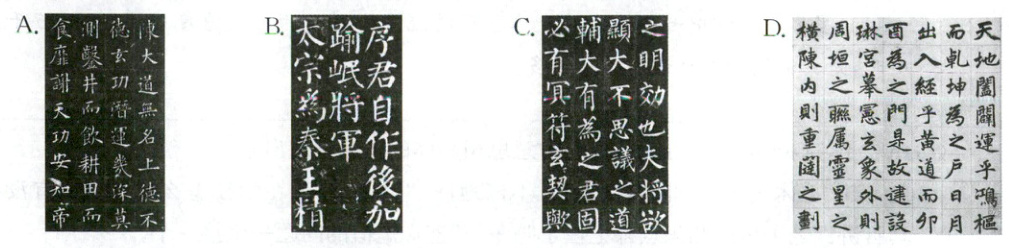 A.
陳大道無名上德不
德玄功潛運幾深莫
測鑿井而飲耕田而
食靡謝天功安知帝
B.
序君自作後加
踰岷將軍
太宗爲秦王精
C.
之明効也夫将欲
顯大不思議之道
輔大有為之君固
必有冥符玄契歟
D.
天地闔闢運乎鴻樞
而乹坤為之户日月
出入經乎黄道而卯
酉為之門是故建設
琳宮摹憲玄象外則
周垣之聮属靈星之
横陳内則重闥之劃